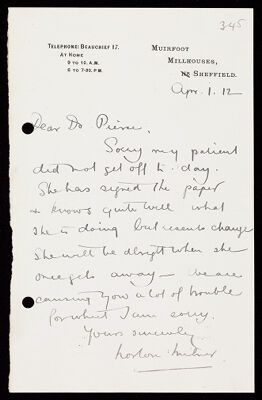 345
TELEPHONE: BEAUCHIEF 17.
AT HOME
9 TO 10. A.M.
6 TO 7-30. P.M.
MUIRFOOT
MILLHOUSES,
NR SHEFFIELD.
Apr. 1. 12
Dear Dr Pierce,
Sorry my patient
did not get off to-day.
She has signed the paper
& knows quite well what
she is doing but resents change
She will be alright when she
once gets away — We are
causing you a lot of trouble
for which I am sorry.
Yours sincerely
Norton Milner